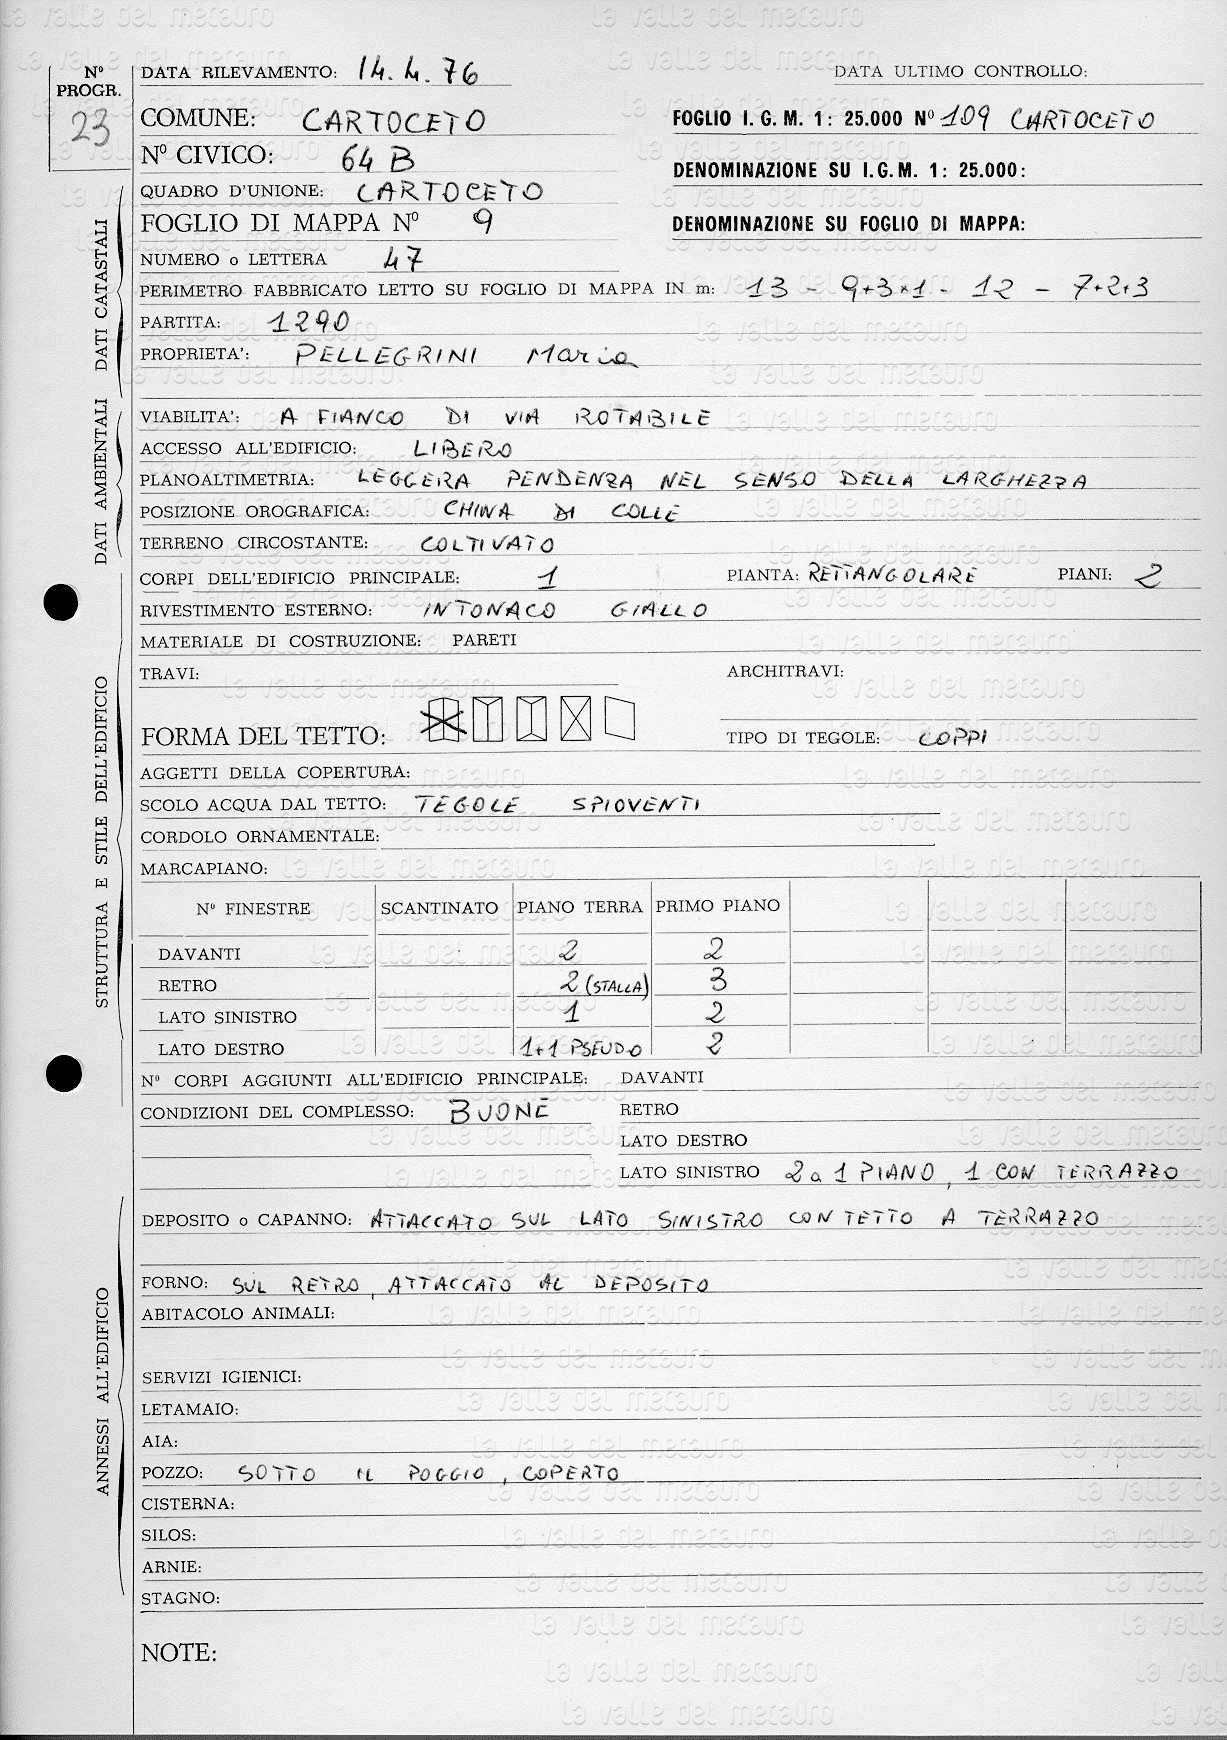 Nº PROGR. 23
DATA RILEVAMENTO: 14.4.76 DATA ULTIMO CONTROLLO:
COMUNE: CARTOCETO FOGLIO I. G. M. 1: 25.000 Nº 109 CARTOCETO
Nº CIVICO: 64 B DENOMINAZIONE SU I.G.M. 1: 25.000:
QUADRO D'UNIONE: CARTOCETO
FOGLIO DI MAPPA Nº 9 DENOMINAZIONE SU FOGLIO DI MAPPA:
NUMERO o LETTERA 47
PERIMETRO FABBRICATO LETTO SU FOGLIO DI MAPPA IN m: 13 - 9+3+1 - 12 - 7+2+3
PARTITA: 1290
PROPRIETA': PELLEGRINI Maria
DATI CATASTALI
VIABILITA': A FIANCO DI VIA ROTABILE
ACCESSO ALL'EDIFICIO: LIBERO
PLANOALTIMETRIA: LEGGERA PENDENZA NEL SENSO DELLA LARGHEZZA
POSIZIONE OROGRAFICA: CHINA DI COLLE
TERRENO CIRCOSTANTE: COLTIVATO
DATI AMBIENTALI
CORPI DELL'EDIFICIO PRINCIPALE: 1 PIANTA: RETTANGOLARE PIANI: 2
RIVESTIMENTO ESTERNO: INTONACO GIALLO
MATERIALE DI COSTRUZIONE: PARETI
TRAVI: ARCHITRAVI:
FORMA DEL TETTO: TIPO DI TEGOLE: COPPI
AGGETTI DELLA COPERTURA:
SCOLO ACQUA DAL TETTO: TEGOLE SPIOVENTI
CORDOLO ORNAMENTALE:
MARCAPIANO:
Nº FINESTRE SCANTINATO PIANO TERRA PRIMO PIANO
DAVANTI 2 2
RETRO 2 (STALLA) 3
LATO SINISTRO 1 2
LATO DESTRO 1+1 PSEUDO 2
STRUTTURA E STILE DELL'EDIFICIO
Nº CORPI AGGIUNTI ALL'EDIFICIO PRINCIPALE: DAVANTI
CONDIZIONI DEL COMPLESSO: BUONE RETRO
LATO DESTRO
LATO SINISTRO 2 a 1 PIANO, 1 CON TERRAZZO
DEPOSITO o CAPANNO: ATTACCATO SUL LATO SINISTRO CON TETTO A TERRAZZO
FORNO: SUL RETRO, ATTACCATO AL DEPOSITO
ABITACOLO ANIMALI:
SERVIZI IGIENICI:
LETAMAIO:
AIA:
POZZO: SOTTO IL POGGIO, COPERTO
CISTERNA:
SILOS:
ARNIE:
STAGNO:
ANNESSI ALL'EDIFICIO
NOTE:
la valle del metauro